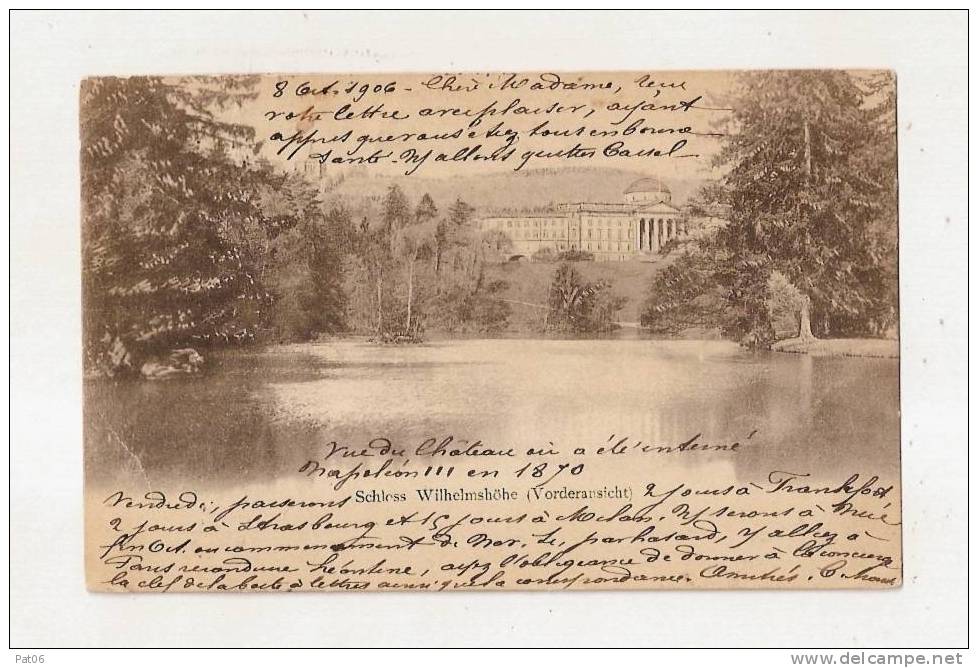 8 Oct. 1906 - Chère Madame, reçu
votre lettre avec plaisir, ayant
appris que vous étiez tous en bonne
santé - Ns allons quitter Cassel
Vue du Château où a été interné
Napoléon III en 1870
Schloss Wilhelmshöhe (Vorderansicht)
Vendredi, passerons 2 jours à Francfort
2 jours à Strasbourg et 15 jours à Milan. Ns serons à Nice
fin Oct. ou commencement de Nov. Si, par hasard, vs allez à
Paris, ayez l'obligeance de donner à la concierge
la clef de la boîte à lettres ainsi que la correspondance. Amitiés. C.
Pat06
www.delcampe.net